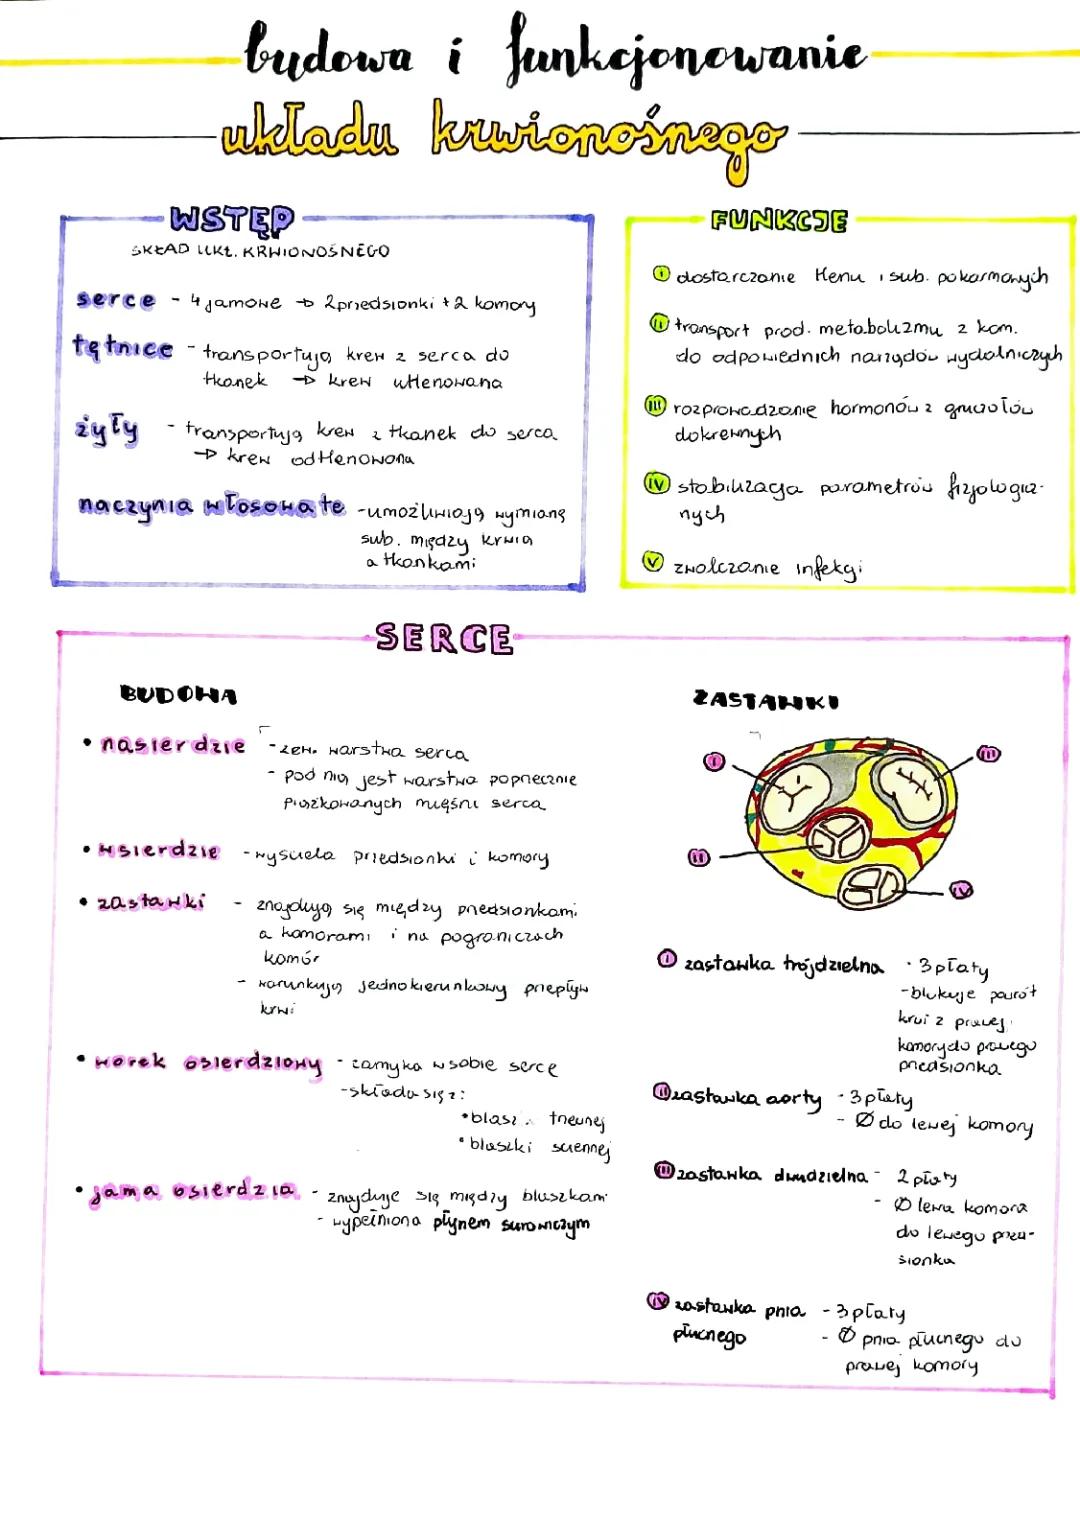 budowa i funkcjonowanie
układu krwionośnego
WSTĘP
SKŁAD UKŁ. KRWIONOŚNEGO
serce - 4 jamowe → 2 przedsionki + 2 komory
tętnice - transportują krew z serca do
tkanek → krew utlenowana
żyły - transportują krew z tkanek do serca
→ krew odtlenowana
naczynia włosowate - umożliwiają wymianę
sub. między krwią
a tkankami
FUNKCJE
I dostarczanie tlenu i sub. pokarmowych
II transport prod. metabolizmu z kom.
do odpowiednich narządów wydalniczych
III rozprowadzanie hormonów z gruczołów
dokrewnych
IV stabilizacja parametrów fizjologicz-
nych
V zwalczanie infekcji
SERCE
BUDOWA
• nasierdzie - zew. warstwa serca
- pod nią jest warstwa poprzecznie
prążkowanych mięśni serca
• wsierdzie - wyściela przedsionki i komory
• zastawki - znajdują się między przedsionkami
a komorami i na pograniczach
komór
- warunkują jednokierunkowy przepływ
krwi
• worek osierdziowy - zamyka w sobie serce
- składa się z:
• blasz trzewnej
• blaszki ściennej
• jama osierdzia - znajduje się między blaszkami
- wypełniona płynem surowiczym
ZASTAWKI
I
III
II
IV
I zastawka trójdzielna · 3 płaty
- blokuje powrót
krwi z prawej
komory do prawego
przedsionka
II zastawka aorty - 3 płaty
- Ø do lewej komory
III zastawka dwudzielna - 2 płaty
- Ø lewa komora
do lewego przed-
sionka
IV zastawka pnia - 3 płaty
płucnego - Ø pnia płucnego do
prawej komory